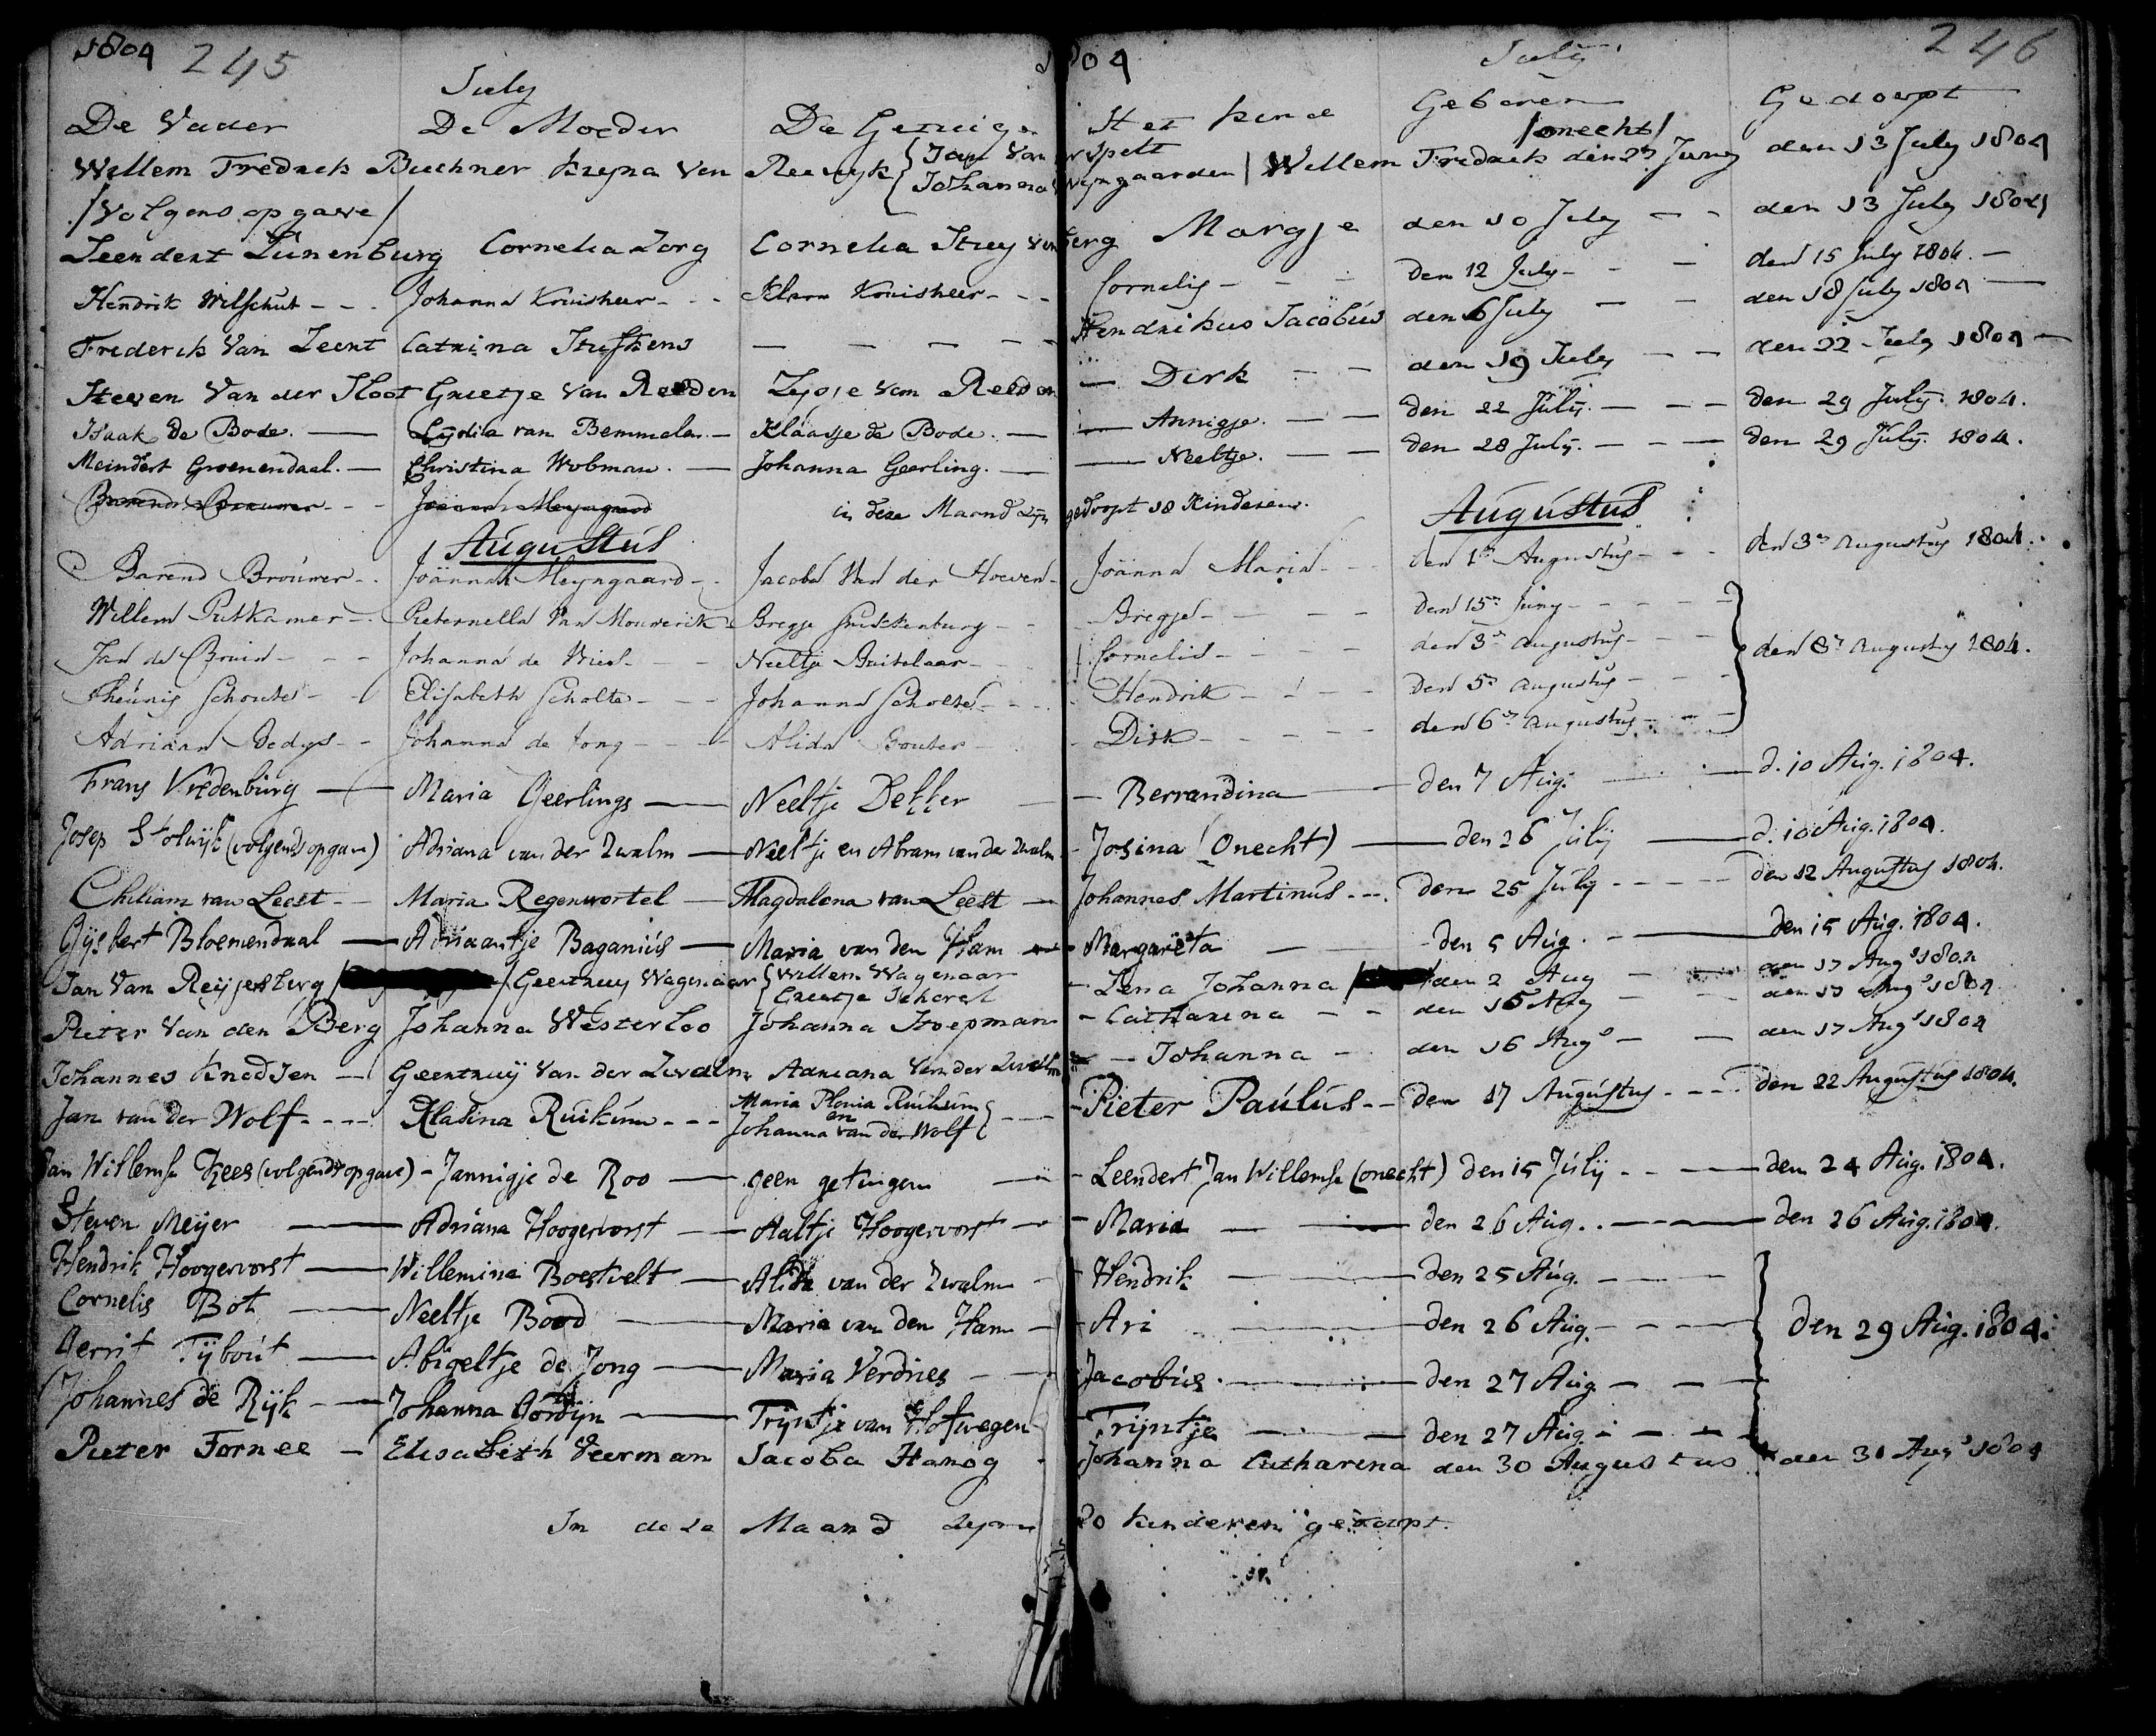 1804 245
July
De Vader De Moeder De Getuigen
Willem Fredrick Buchner Kryna Van Reewyk { Jan Van
Johanna
/Volgens opgave/
Leendert Lunenburg Cornelia Zorg Cornelia
Hendrik Wilschut - - Johanna Kruisheer - - Klara Kruisheer - -
Frederik Van Leent Catrina Stuffkens — — — — —
Steven Van der Sloot Grietje Van Reeden Zygje Van Reeden
Isaak de Bode. — Lydia van Bemmelen. — Klaasje de Bode. —
Meindert Groenendaal. — Christina Wobman. — Johanna Geerling. —
Barend Brouwer - - Joanna Meyngaard in deze Maand zyn
Augustus
Barend Brouwer - - Joänna Meyngaard - - Jacoba Van der Hoeven -
Willem Putkamer - - Pieternella Van Mouwerik Bregje
Jan de Bruin - - - Johanna de Vries - - Neeltje Buitelaar - -
Theunis Schouten - - Elisabeth Scholte - - - Johanna Scholte - - -
Adriaan Bedys - - Johanna de Jong - - - Alida Bouter -
Frans Vredenburg — Maria Geerlings — Neeltje Dekker
Josep Stolwijk (volgends opgave) Adriana van der Zwalm — Neeltje en Abram van der Zwalm
Chiliam van Leest - - Maria Regenwortel — Magdalena van Leest —
Gijsbert Bloemendaal — Adriaantje Baganús — Maria van den Ham —
Jan Van Reijgersberg / / Geertruy Wagenaar { Willem Wagenaar
Grietje
Pieter Van den Berg Johanna Westerloo Johanna Hoepman
Johannes Knodsen — Geertruÿ Van der Zwalm Adriana Van der Zwalm
Jan van der Wolf - - - - Klasina Ruikum - - - Maria Plonia Ruikum
en
Johanna van der Wolf } - - -
Jan Willemse Kees (volgends opgave) - Jannigje de Roo — geen getuigen —
Steven Meijer — Adriana Hoogervorst — Aaltje Hoogervorst —
Hendrik Hoogervorst — Willemina Boestvelt — Alida van der Zwalm
Cornelis Bot — Neeltje Bood — Maria van den Ham —
Gerrit Tijbout — Abigeltje de Jong — Maria Verdries —
Johannes de Rijk — Johanna Gordijn — Trijntje van Hofwegen
Pieter Fornee — Elisabeth Veerman Jacoba Hanog
In deze Maand zijn
1804 July 246
Het kind Geboren Gedoopt
/onecht/
Spelt
Wijngaarden / Willem Fredrick den 27 Juny den 13 July 1804
berg Margje den 10 July — - den 13 July 1804
Cornelis - - - den 12 July - - — den 15 July 1804. —
Hendrikus Jacobus den 6 July — — den 18 July 1804 —
— Dirk - - den 19 July — — den 22 July 1804 —
— Annigje. — — den 22 July. — - — den 29 July. 1804.
— Neeltje. — — den 28 July. — - — den 29 July. 1804.
gedoopt 18 Kinderen. Augustus
Joänna Maria - - den 1en Augustus - - den 3en Augustus 1804.
- Bregje - - - den 15en Juny - - - -
Cornelis - - - den 3en Augustus - - -
Hendrik - - - - den 5en Augustus - - - } den 8en Augustus 1804.
- Dirk - - - - den 6en Augustus - - -
- Berrandina — den 7 Aug. — d. 10 Aug. 1804.
- Josina (Onecht) — den 26 Julij — d. 10 Aug. 1804.
Johannes Martinus - - - den 25 July - - - - den 12 Augustus 1804.
- Margareta — den 5 Aug. — den 15 Aug. 1804.
- Lena Johanna / / den 2 Aug — den 17 Augs 1804
- Catharina - - den 15 Aug — — den 17 Augs 1804
— Johanna - den 16 Augs — — den 17 Augs 1804
- Pieter Paúlus - - den 17 Augustus - - - den 22 Augustus 1804.
- Leendert Jan Willemse (onecht) den 15 Júlij - - — den 24 Aug. 1804.
- Maria — — den 26 Aug. - — den 26 Aug. 1804.
- Hendrik — den 25 Aug. - - —
- Ari — den 26 Aug. - - — } den 29 Aug. 1804.
Jacobús. — den 27 Aug — — —
- Trijntje — — den 27 Aug - — - —
Johanna Catharina den 30 Augustus den 31 Augs 1804
20 kinderen gedoopt.